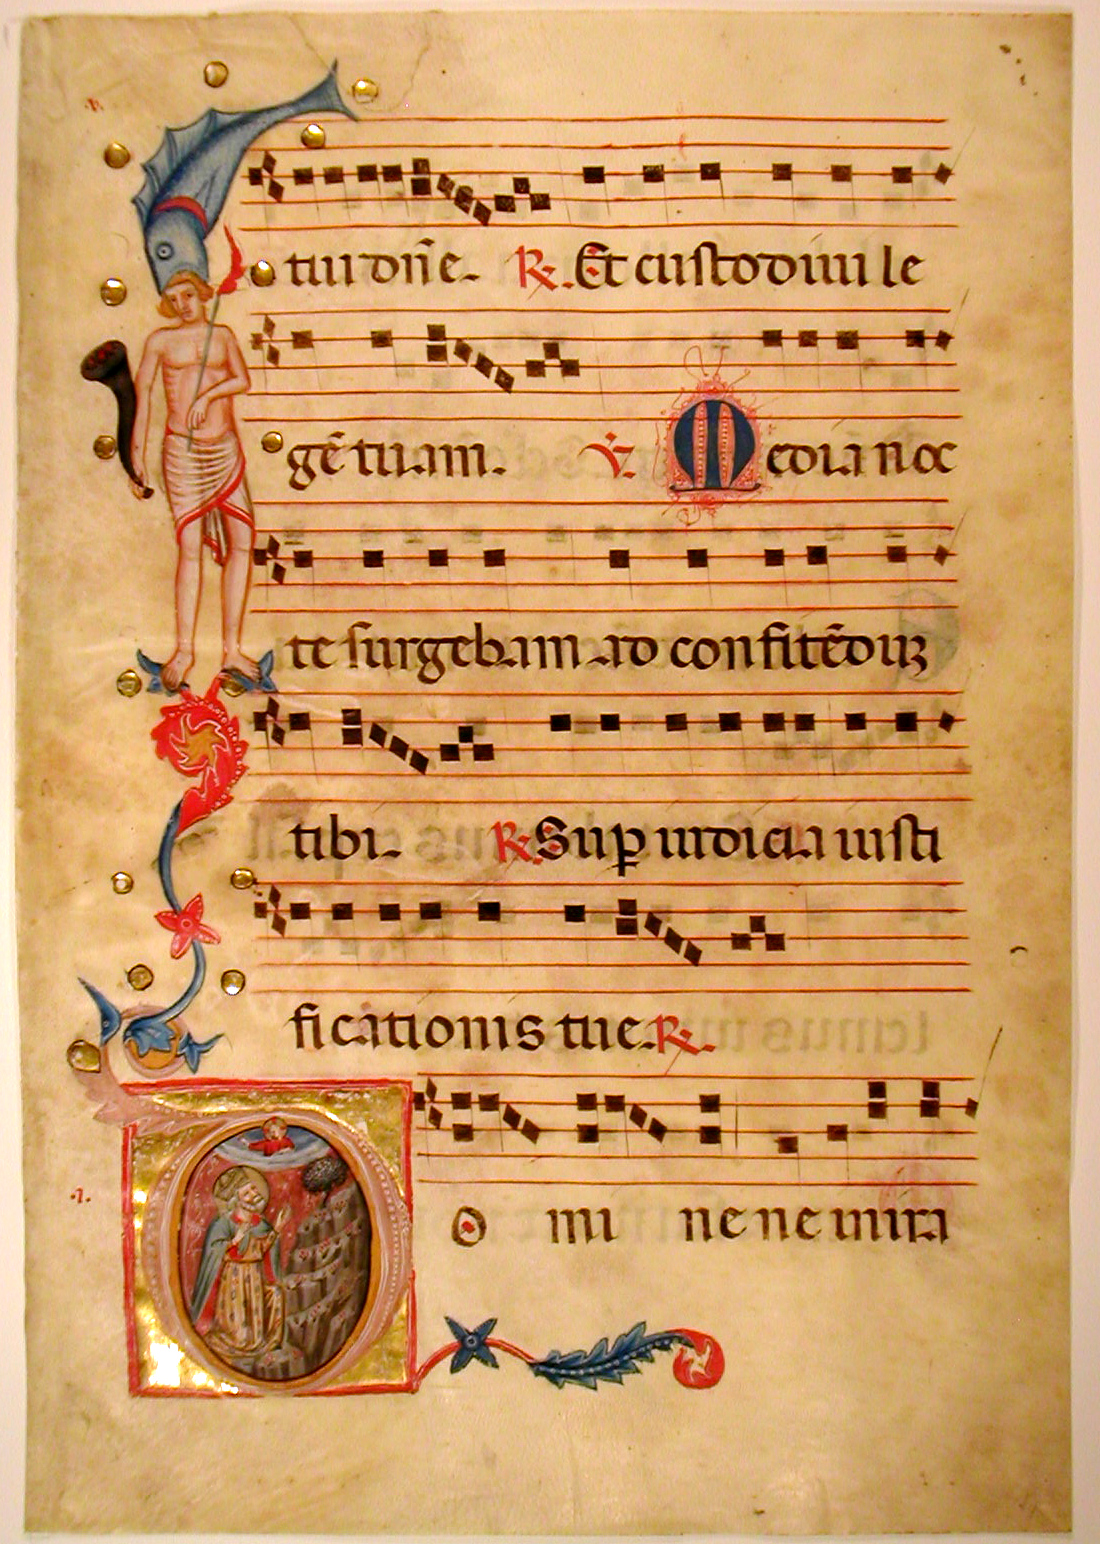 tui dn̄e. ℟. Et custodiui le
gē tuam. ℣. Media noc
te surgebam ad confitēduꝫ
tibi. ℟. Suꝑ iudicia iusti
ficationis tue. ℟.
.1. O mi ne ne in ira